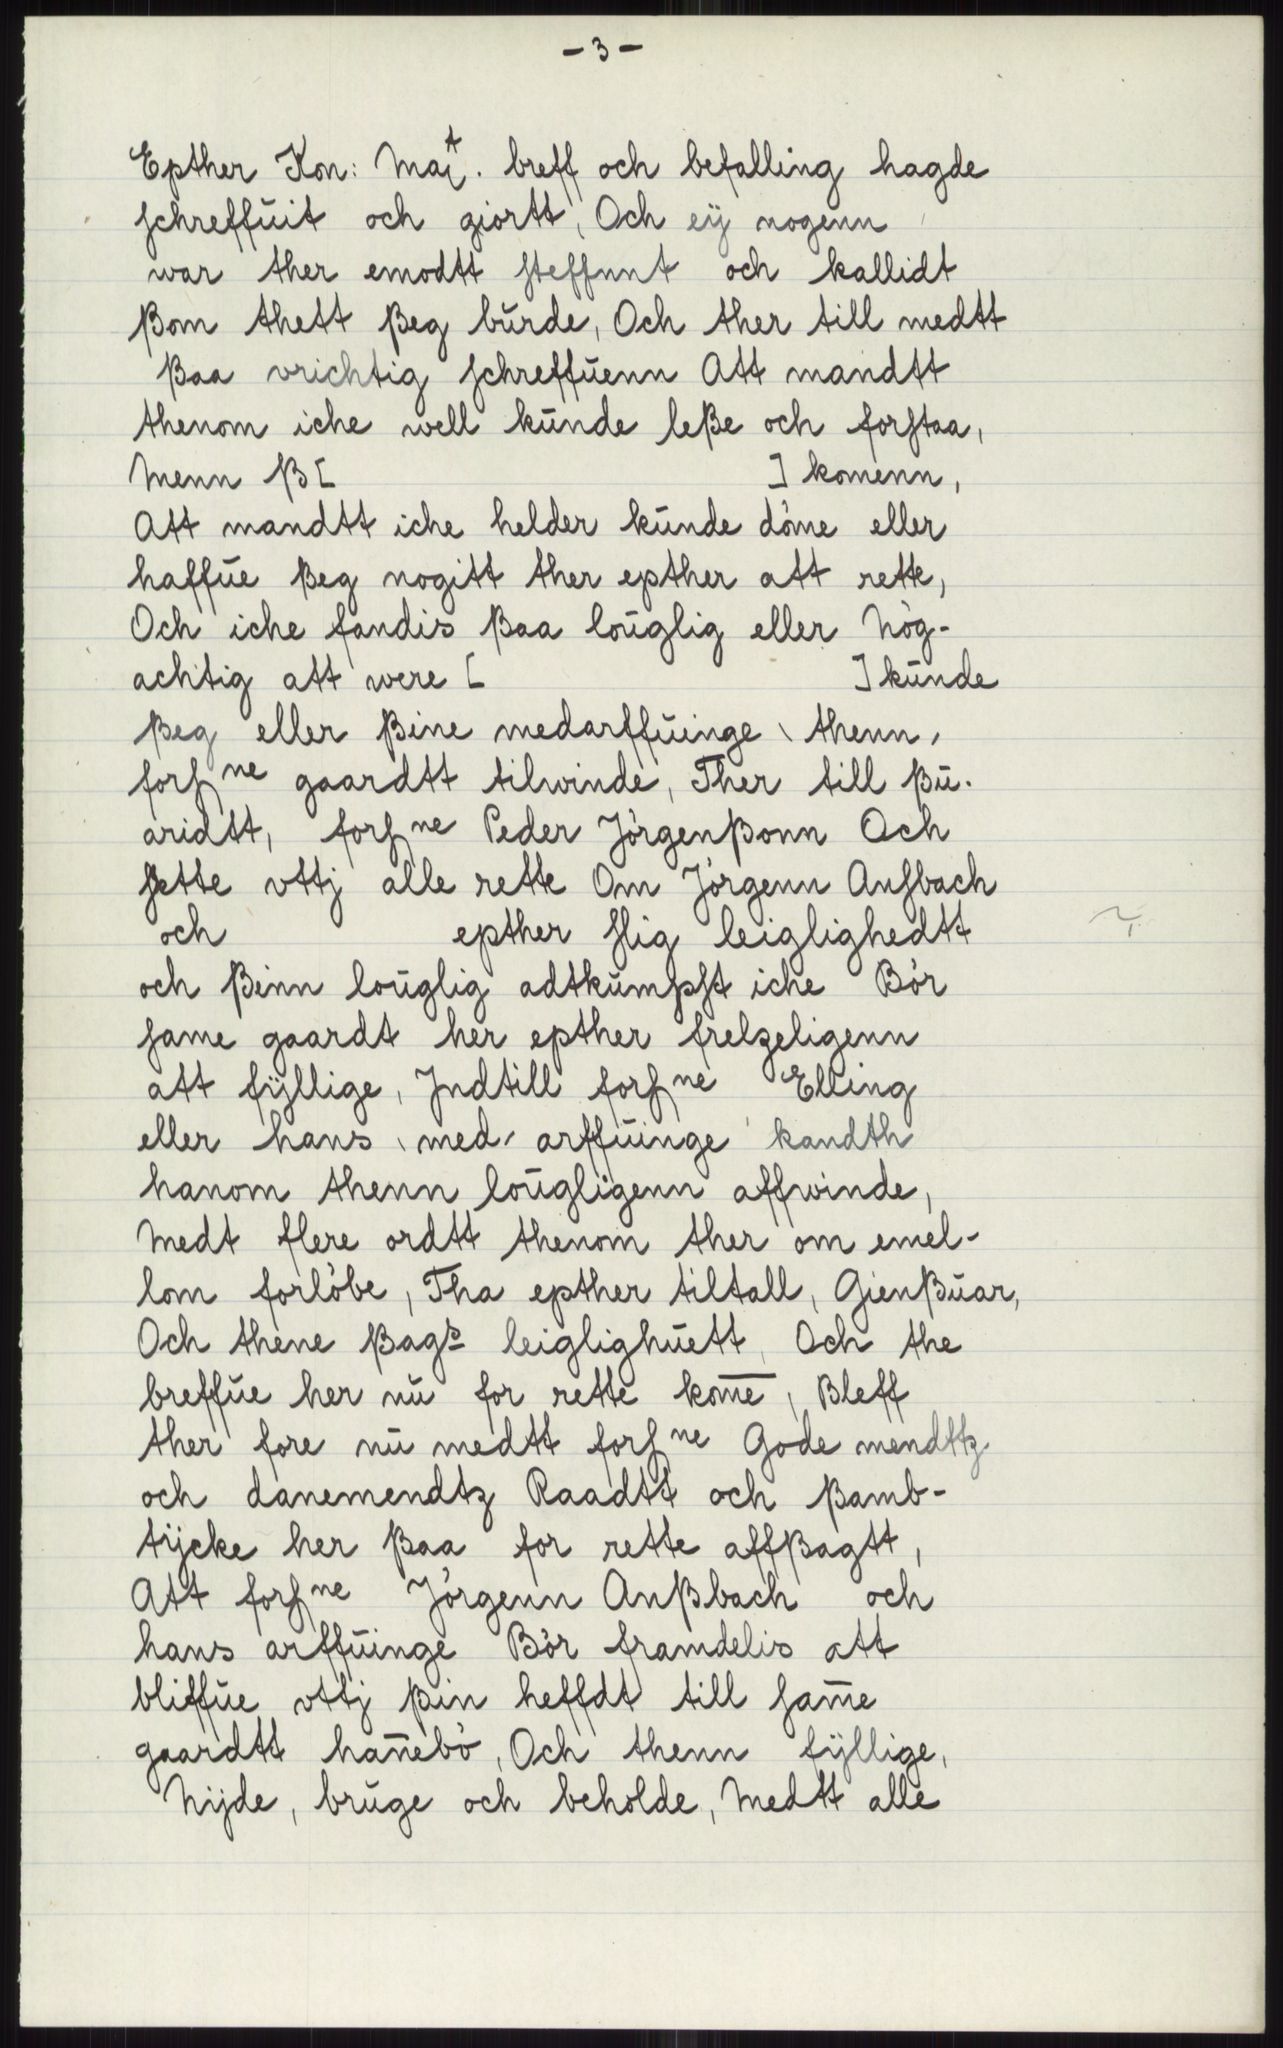 - 3 -
Epther Kon: Maiᵗ. breff och befalling hagde
schreffūit och giortt, Och eÿ nogenn
war ther emodtt steffnnt och kallidt
ßom thett ßeg būrde, Och ther till medtt
ßaa vrichtig schreffūenn Att mandtt
thenom iche well kūnde leße och forstaa,
Menn ß[ ] komenn,
Att mandtt iche helder kūnde döme eller
haffūe ßeg nogitt ther epther att rette,
Och iche fandis ßaa loūglig eller Nög-
achtig att were [ ] kūnde
ßeg eller ßine medarffūinge \ thenn,
forsⁿᵉ gaardtt tilwinde, Ther till ßū.
aridtt, forsⁿᵉ Peder Jörgenßonn Och
sette vttj alle rette Om Jörgenn Ansbach
och epther slig leiglighedtt
och ßinn loūglig adtkūmpst iche Bör
same gaardt her epther frelzeligenn
att fÿllige, Jndtill forsⁿᵉ Elling
eller hans \ med, arffūinge kandth
hanom thenn loūgligenn affwinde,
Medt flere ordtt thenom ther om emel-
lom forlöbe, Tha epther tiltall, Gienßūar,
Och thene ßagˢ leiglighūett, Och the
breffūe her nū for rette kom̄e, Bleff
ther fore nū medtt forsⁿᵉ Gode mendttz
och danemendtz Raadtt och ßamb-
tÿcke her ßaa for rette affßagtt,
Att forsⁿᵉ Jörgenn Anßbach och
hans arffūinge Bör framdelis att
bliffūe vttj ßin heffdt till sam̄e
gaardtt han̄ebö, Och thenn fÿllige,
Nÿde, brūge och beholde, Medtt alle